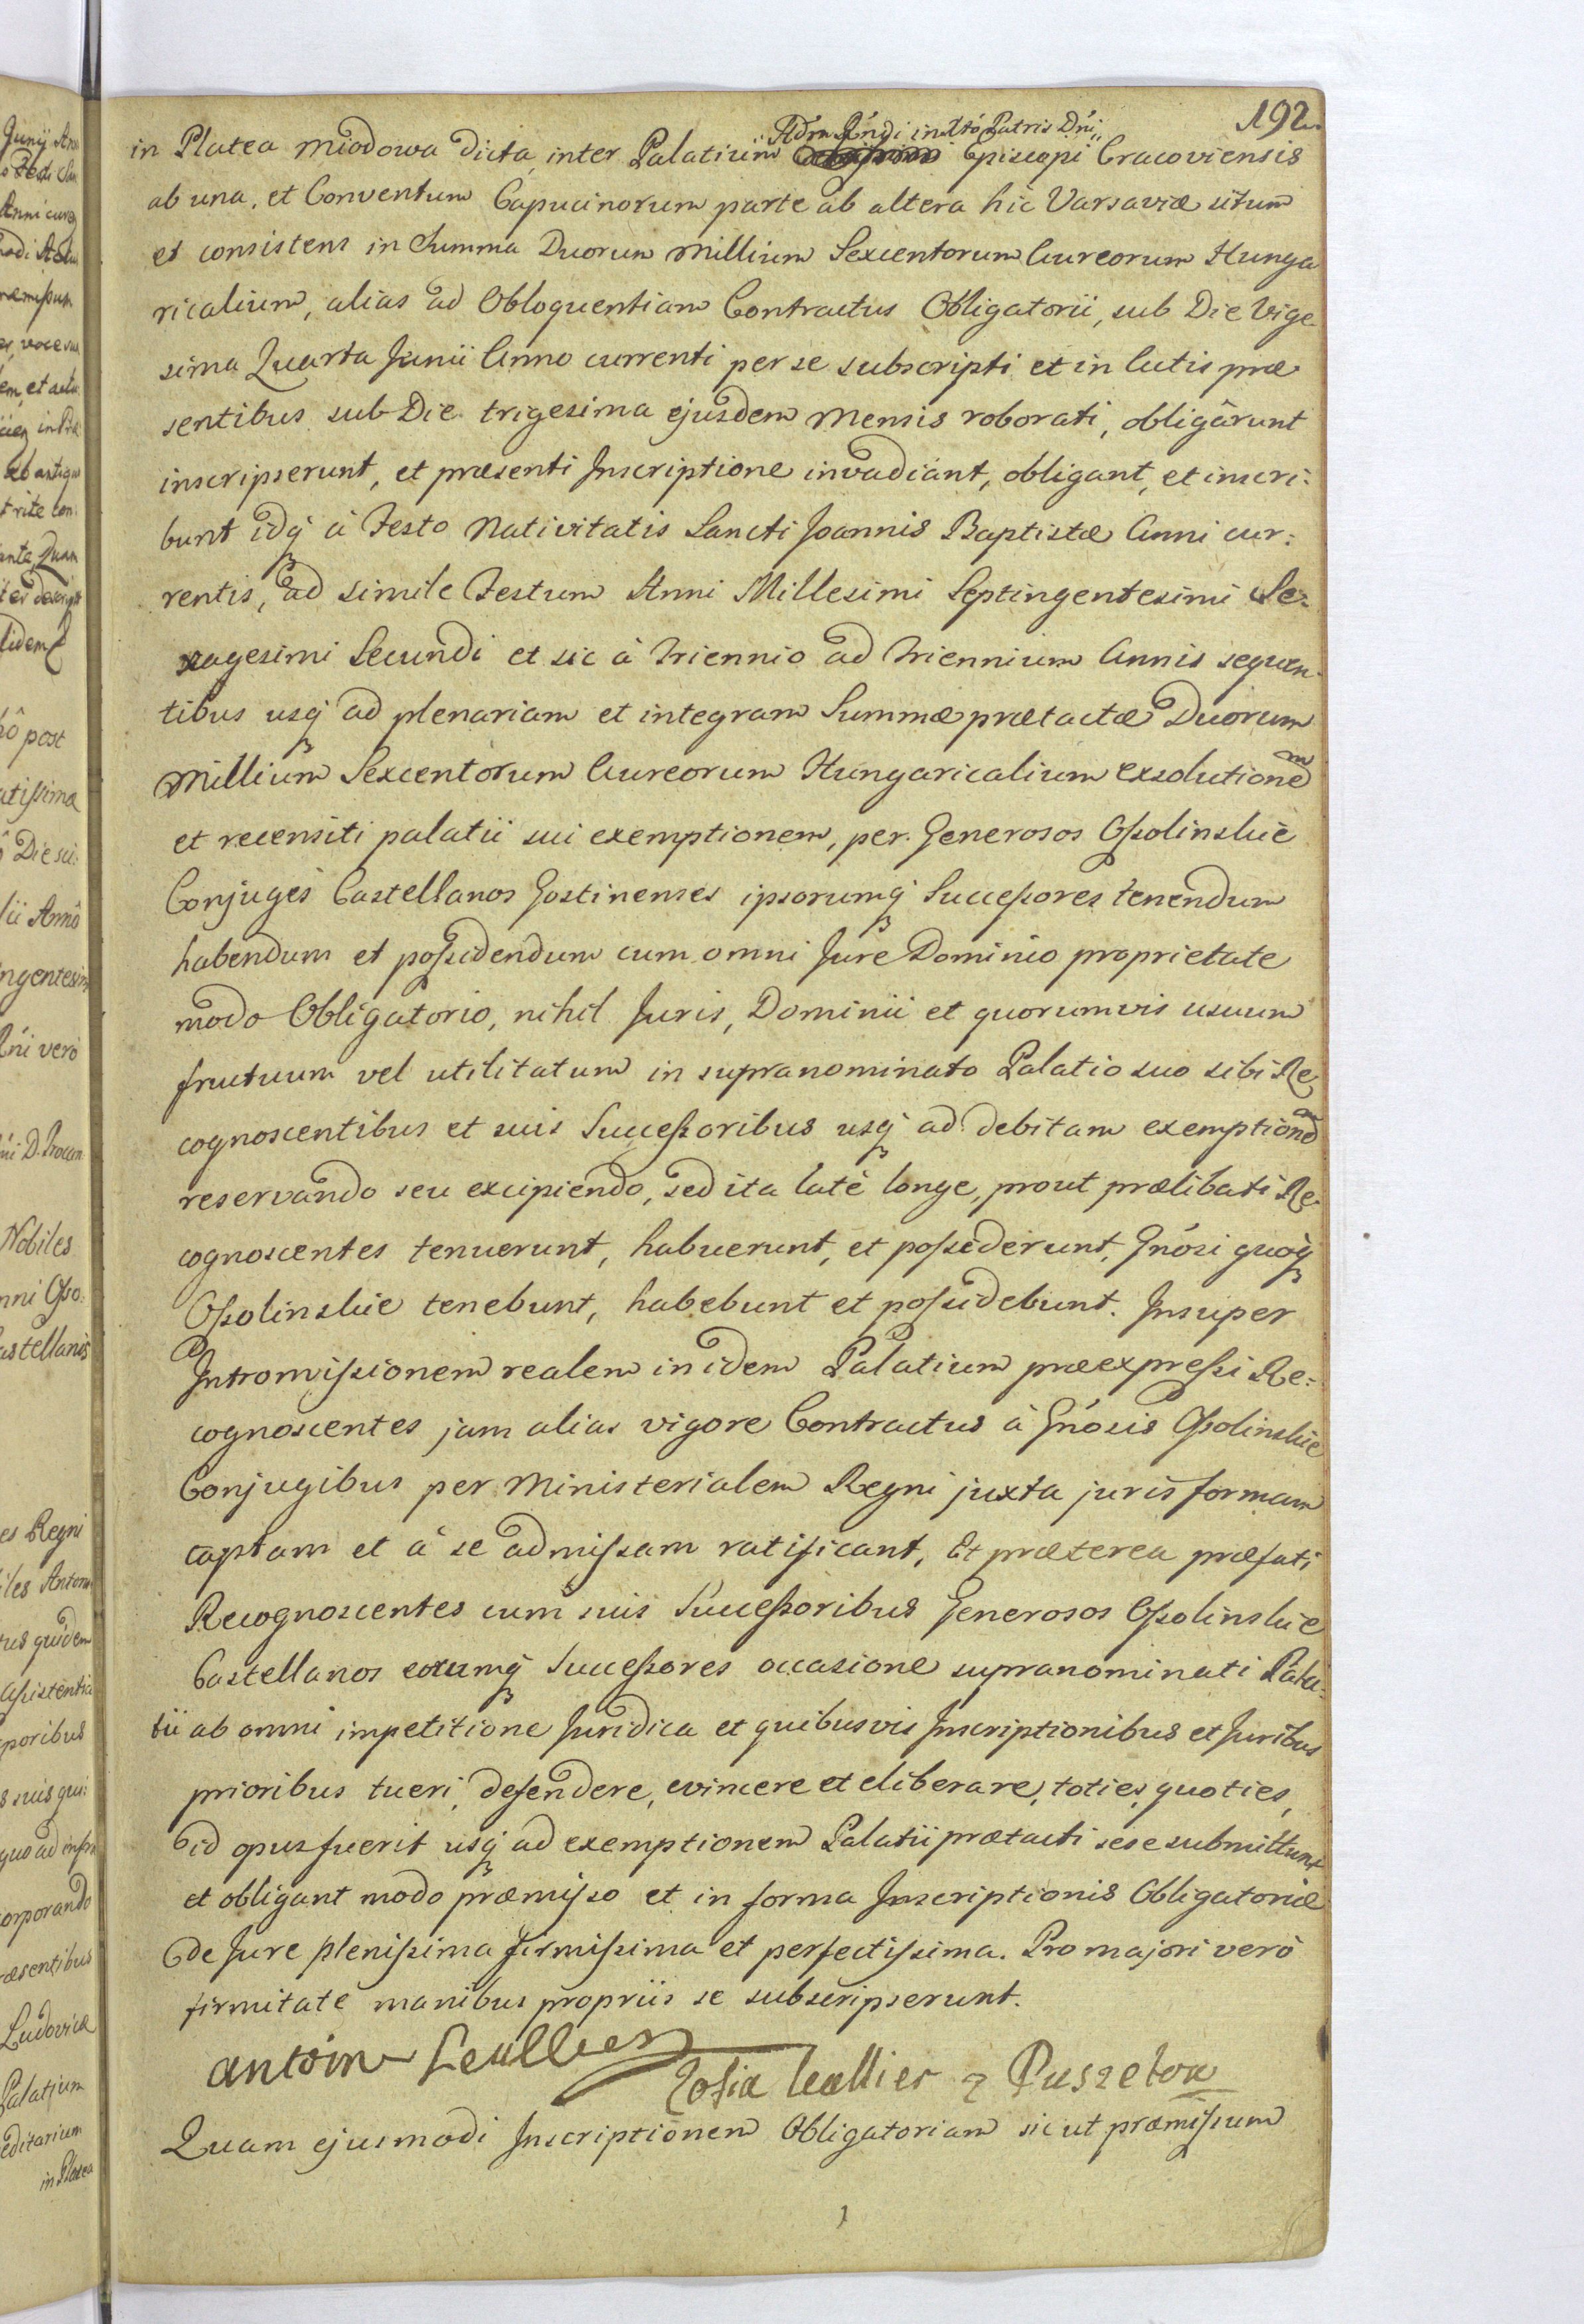 192
Adm Rńdi in Xto Patris Dńi
in Platea Miodowa dicta, inter Palatium Episcopi Cracoviensis
ab una, et Conventum Capucinorum parte ab altera hic Varsaviæ situm
et consistens in Summa Duorum Millium Sexcentorum Aureorum Hunga
ricalium, alias ad Obloquentiam Contractus Obligatorii, sub Die Vige-
sima Quarta Junii Anno currenti per se subscripti et in Actis præ
sentibus sub Die trigesima ejusdem Mensis roborati, obligârunt
inscripserunt, et præsenti Inscriptione invadiant, obligant, et inscri:
bunt idq́ à Festo Nativitatis Sancti Joannis Baptistæ Anni cur:
rentis, ad simile Festum Anni Millesimi Septingentesimi Se:
xagesimi Secundi et sic à Triennio ad Triennium Annis sequen-
tibus usq́ ad plenariam et integram Summæ prætactæ Duorum
Millium Sexcentorum Aureorum Hungaricalium exsolutionem
et recensiti palatii sui exemptionem, per Generosos Ossolinskie
Conjuges Castellanos Gostinenses ipsorumq́ Successores tenendum
habendum et possidendum cum omni Jure Dominio proprietate
modo Obligatorio, nihil Juris, Dominii et quorumvis usuum
fructuum vel utilitatum in supranominato Palatio suo sibi Re
cognoscentibus et suis Successoribus usq́ ad debitam exemptionem
reservando seu excipiendo, sed ita latè longe, prout prælibati Re-
cognoscentes tenuerunt, habuerunt, et possederunt, Gńosi quoq́
Ossolinskie tenebunt, habebunt et possidebunt. Insuper
Intromissionem realem in idem Palatium præexpressi Re:
cognoscentes jam alias vigore Contractus à Gńosis Ossolinskie
Conjugibus per Ministerialem Regni juxta juris formam
captam et à se admissam ratificant, Et præterea præfati
Recognoscentes cum suis Successoribus Generosos Ossolinskie
Castellanos eorumq́ Successores occasione supranominati Pala:
tii ab omni impetitione Juridica et quibusvis Inscriptionibus et Juribus
prioribus tueri, defendere, evincere et eliberare, toties, quoties,
id opus fuerit usq́ ad exemptionem Palatii prætacti sese submittunt
et obligant modo præmisso et in forma Inscriptionis Obligatoriæ
de Jure plenissima firmissima et perfectissima. Pro majori verò
firmitate manibus propriis se subscripserunt.
antoin Leullier
Zofia leullier z Puszetow
Quam ejusmodi Inscriptionem Obligatoriam sicut præmissum